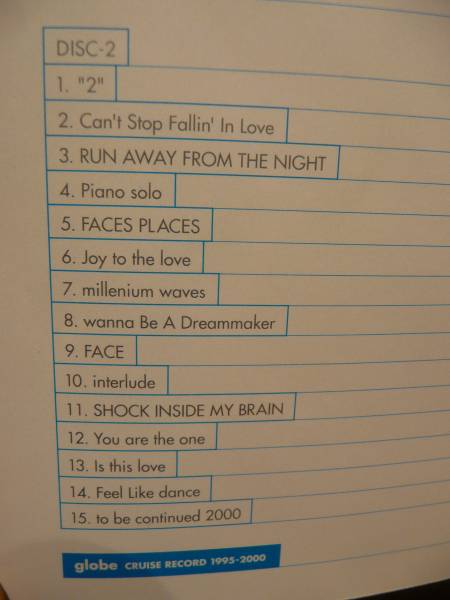 DISC-2
1. "2"
2. Can't Stop Fallin' In Love
3. RUN AWAY FROM THE NIGHT
4. Piano solo
5. FACES PLACES
6. Joy to the love
7. millenium waves
8. wanna Be A Dreammaker
9. FACE
10. interlude
11. SHOCK INSIDE MY BRAIN
12. You are the one
13. Is this love
14. Feel Like dance
15. to be continued 2000
globe CRUISE RECORD 1995-2000